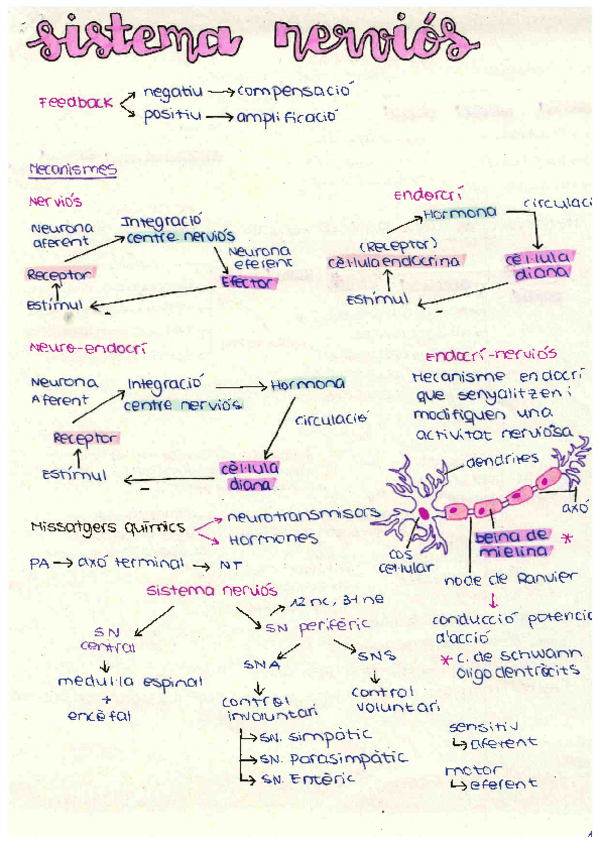 sistema nerviós
Feedback
negatiu → compensació
positiu → amplificació
Mecanismes
Nerviós
Neurona
aferent
Integració
centre nerviós
Neurona
eferent
Receptor
Efector
Estímul
-
Endocrí
Hormona
circulaci
(Receptor)
cèl·lula endocrina
cèl·lula
diana
Estímul
-
Neuro-endocrí
Neurona
Aferent
Integració
centre nerviós
Hormona
circulació
Receptor
cèl·lula
diana
Estímul
-
Endocrí-nerviós
Mecanisme endocrí
que senyalitzen i
modifiquen una
activitat nerviosa
dendrites
axó
beina de
mielina *
cos
cel·lular
node de Ranvier
conducció potencia
d'acció
* c. de schwann
oligodentròcits
Missatgers químics
neurotransmisors
Hormones
PA → axó terminal → NT
Sistema nerviós
12 nc, 31 ne
SN
central
SN perifèric
medul·la espinal
+
encèfal
SNA
SNS
control
involuntari
control
voluntari
SN. simpàtic
SN. Parasimpàtic
SN. Entèric
sensitiv
↳ aferent
motor
↳ eferent